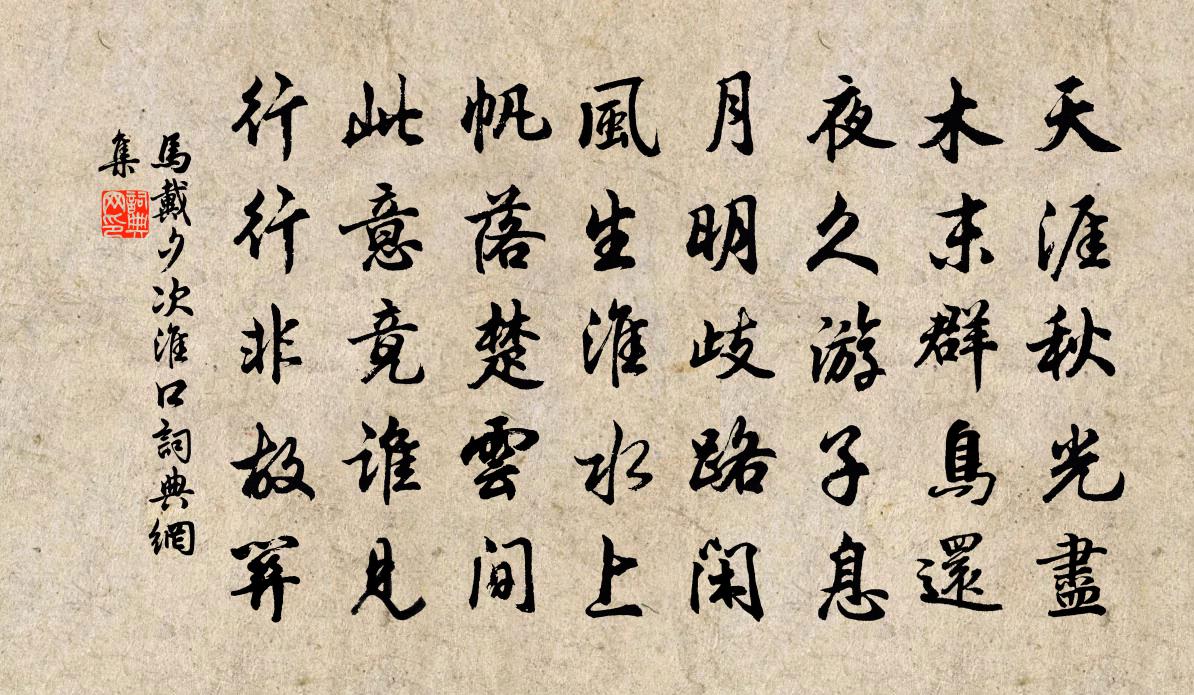 天涯秋光盡
木末群鳥還
夜久游子息
月明歧路閑
風生淮水上
帆落楚雲間
此意竟誰見
行行非故關
馬戴夕次淮口詞典網
集
詞典
网印